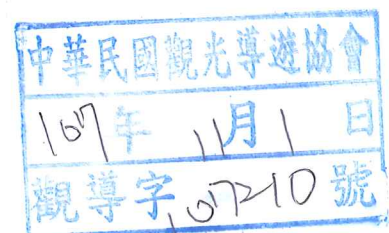 中華民國觀光導遊協會
107年11月1日
觀導字107210號